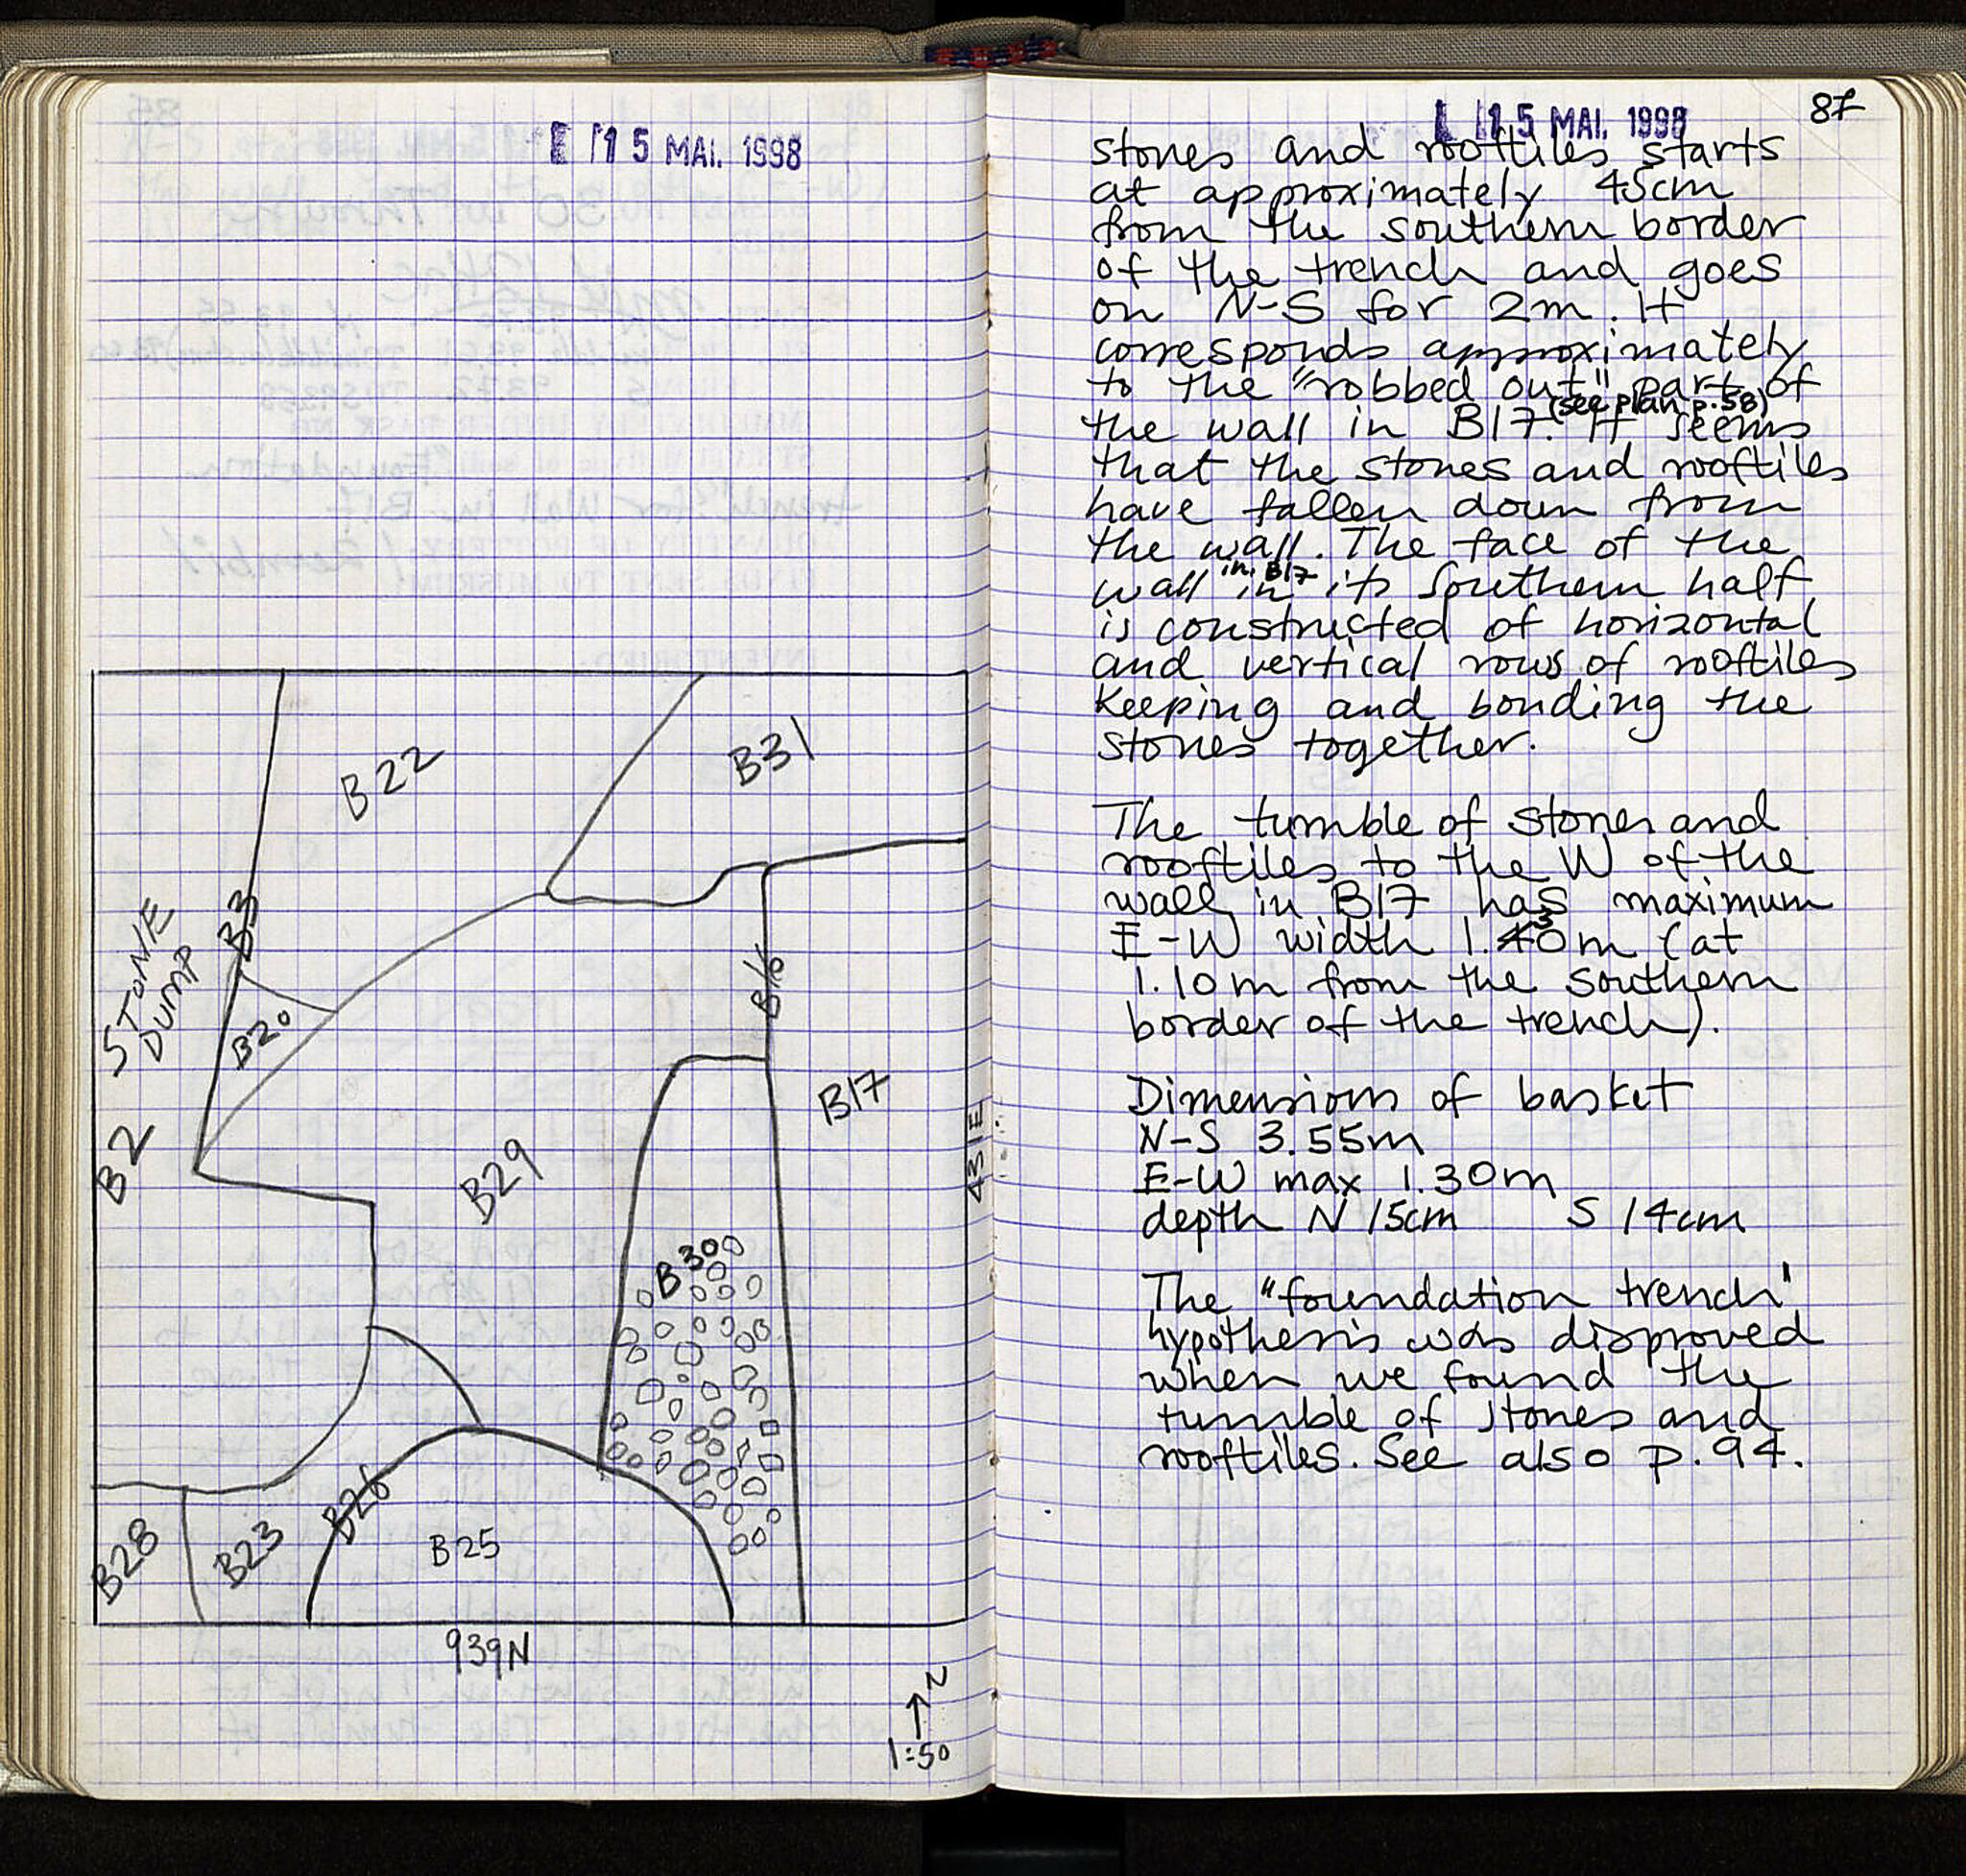 15 MAI. 1998
B22
B31
B3
STONE
DUMP
B20
B16
B17
B2
B29
431E
B30
B28
B23
B26
B25
939N
N
1:50
15 MAI. 1998
87
stones and rooftiles starts
at approximately 45cm
from the southern border
of the trench and goes
on N-S for 2m. It
corresponds approximately
to the "robbed out" part of
(see plan p.58)
the wall in B17. It seems
that the stones and rooftiles
have fallen down from
the wall. The face of the
in B17
wall in its Southern half
is constructed of horizontal
and vertical rows of rooftiles
keeping and bonding the
stones together.
The tumble of stones and
rooftiles to the W of the
wall in B17 has maximum
E-W width 1.30m (at
1.10m from the southern
border of the trench).
Dimensions of basket
N-S 3.55m
E-W max 1.30m
depth N 15cm S 14cm
The "foundation trench"
hypothesis was disproved
when we found the
tumble of stones and
rooftiles. See also p.94.